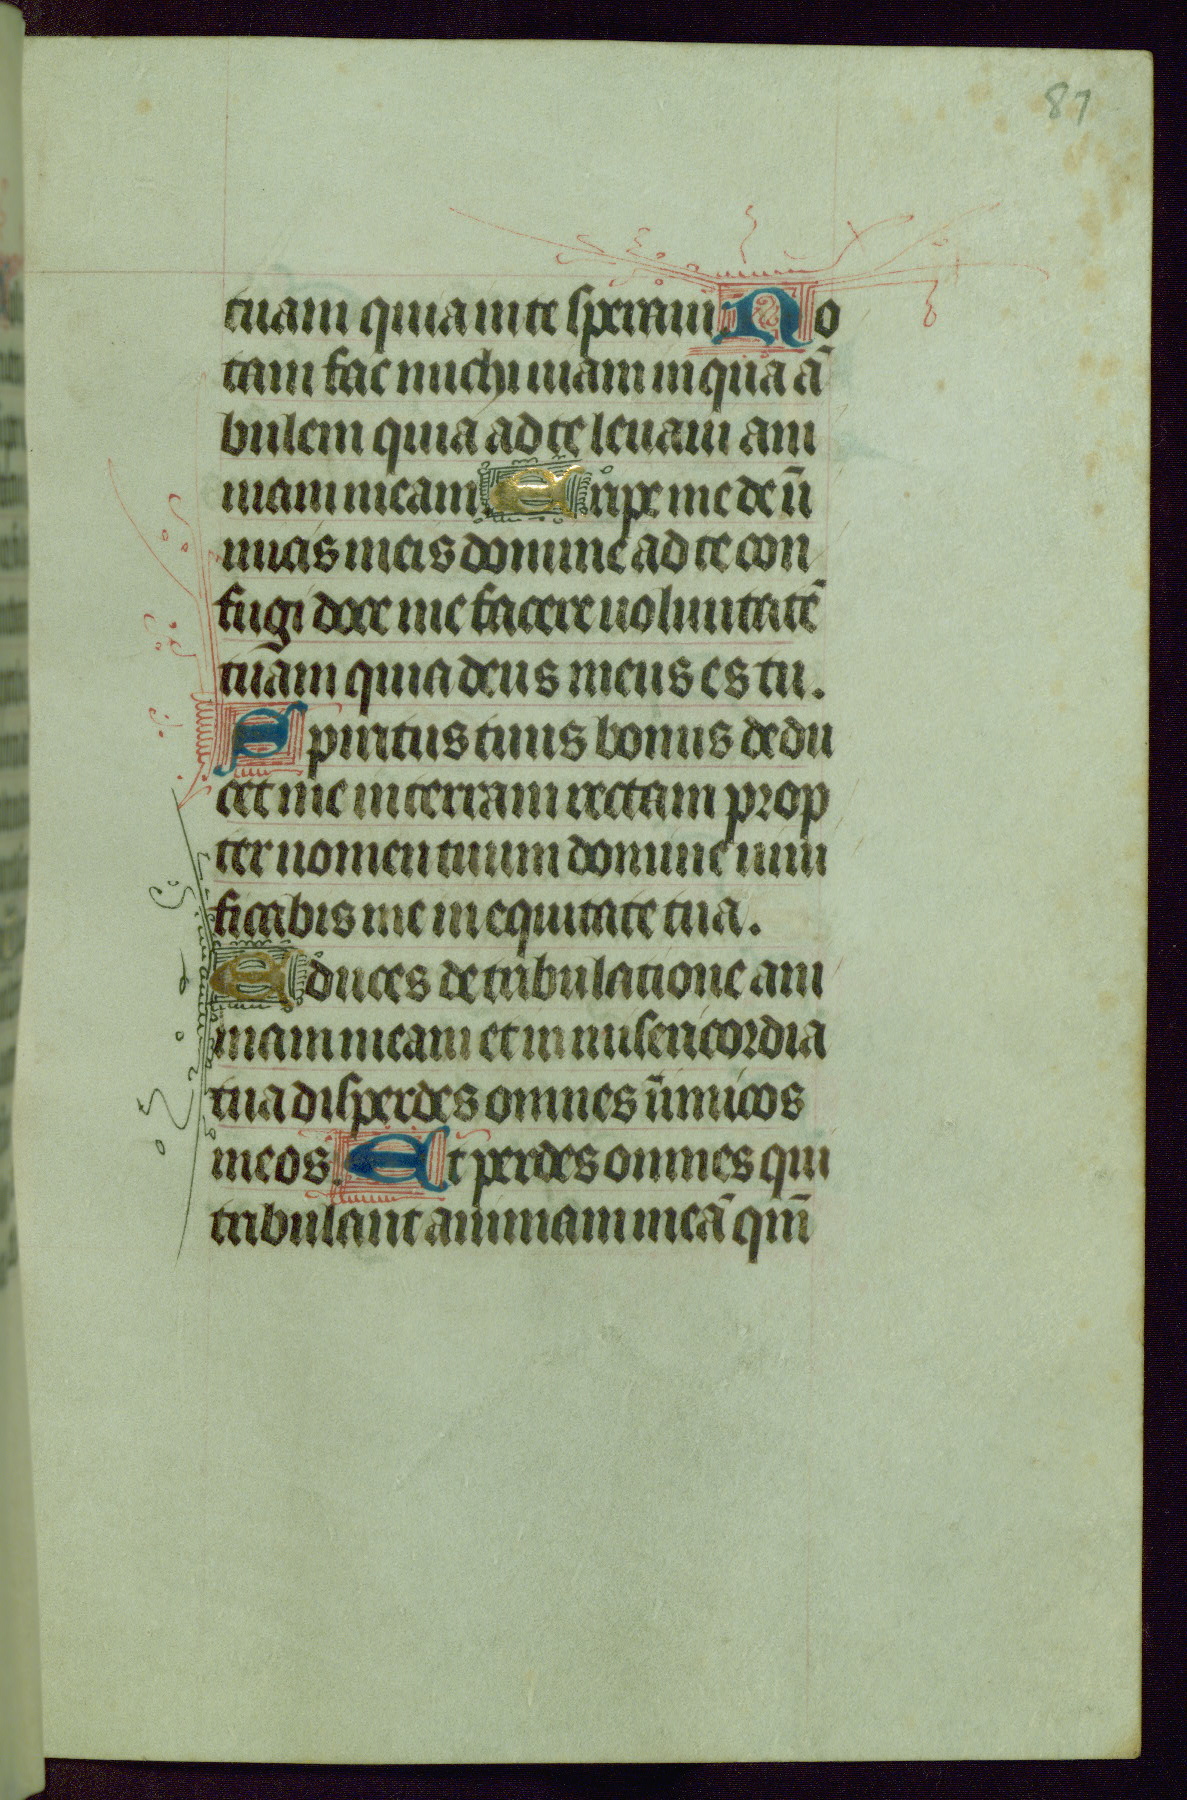 87
tuam quia in te speraui No
tam fac michi uiam in qua ā
bulem quia ad te leuaui ani
mam meam. Eripe me de ini
micis meis domine ad te con
fugi doce me facere uoluntatē
tuam quia deus meus es tu.
Spiritus tuus bonus dedu
cet me in terram rectam prop
ter nomen tuum domine uiui
ficabis me in equitate tua.
Educes de tribulatione ani
mam meam et in misericordia
tua disperdes omnes inimicos
meos. Et perdes omnes qui
tribulant animam meā qm̄